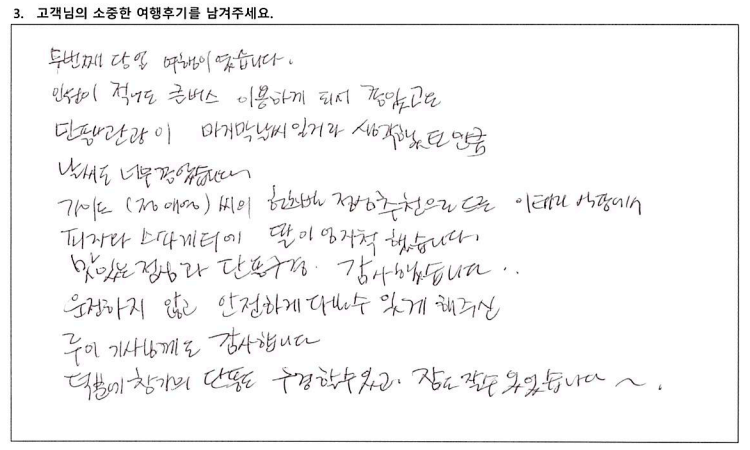 3. 고객님의 소중한 여행후기를 남겨주세요.
두번째 당일 여행이였습니다.
인원이 적어도 큰버스 이용하게 되서 좋았고요
단풍관광이 마지막날씨일거라 생각했는데 만큼
날씨도 너무 좋았습니다
가이드 (정애영) 씨의 점심추천으로 드른 이태리 식당에서
피자와 스파게티에 딸이 엄지척 했습니다.
맛있는 점심과 단풍구경. 감사했습니다..
운전하지 않고 안전하게 다닐수 있게 해주신
루이 기사님께도 감사합니다
덕분에 창가의 단풍도 구경할수있고. 잠도 잘수 있었습니다~.